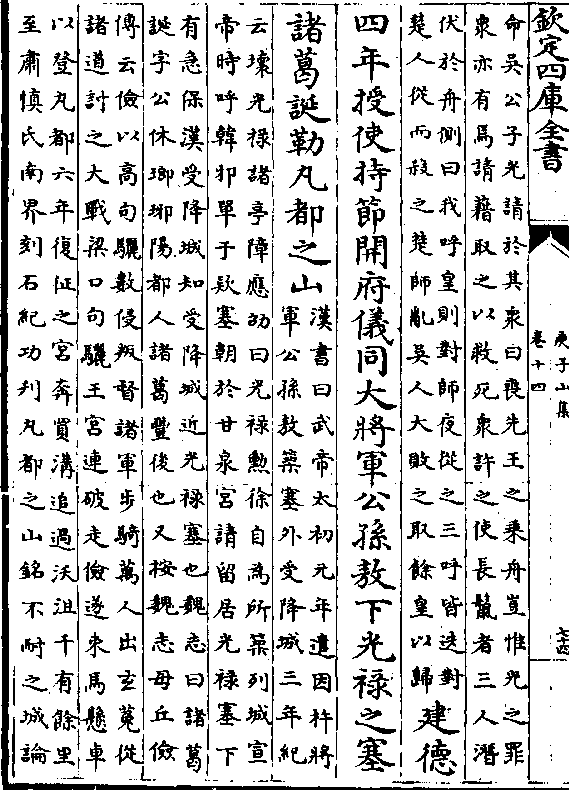 欽定四庫全書
庾子山集
卷十四
七十四
命吳公子光請於其衆曰喪先王之乗舟豈惟光之罪
衆亦有焉請藉取之以救死衆許之使長鬛者三人潛
伏於舟側曰我呼皇則對師夜從之三呼皆迭對
楚人從而殺之楚師亂吳人大敗之取餘皇以歸
建德
四年授使持節開府儀同大將軍公孫敖下光禄之塞
諸葛誕勒丸都之山
漢書曰武帝太初元年遣因杅將
軍公孫敖築塞外受降城三年紀
云壊光禄諸亭障應劭曰光禄勲徐自為所築列城宣
帝時呼韓邪單于欵塞朝於甘泉宮請留居光禄塞下
有急保漢受降城知受降城近光禄塞也魏志曰諸葛
誕字公休瑯琊陽都人諸葛豐後也又按魏志毋丘儉
傅云儉以高句驪數侵叛督諸軍步騎萬人出玄菟從
諸道討之大戰梁口句驪王宮連破走儉遂束馬懸車
以登丸都六年復征之宮奔買溝追過沃沮千有餘里
至肅慎氏南界刻石紀功刋丸都之山銘不耐之城論